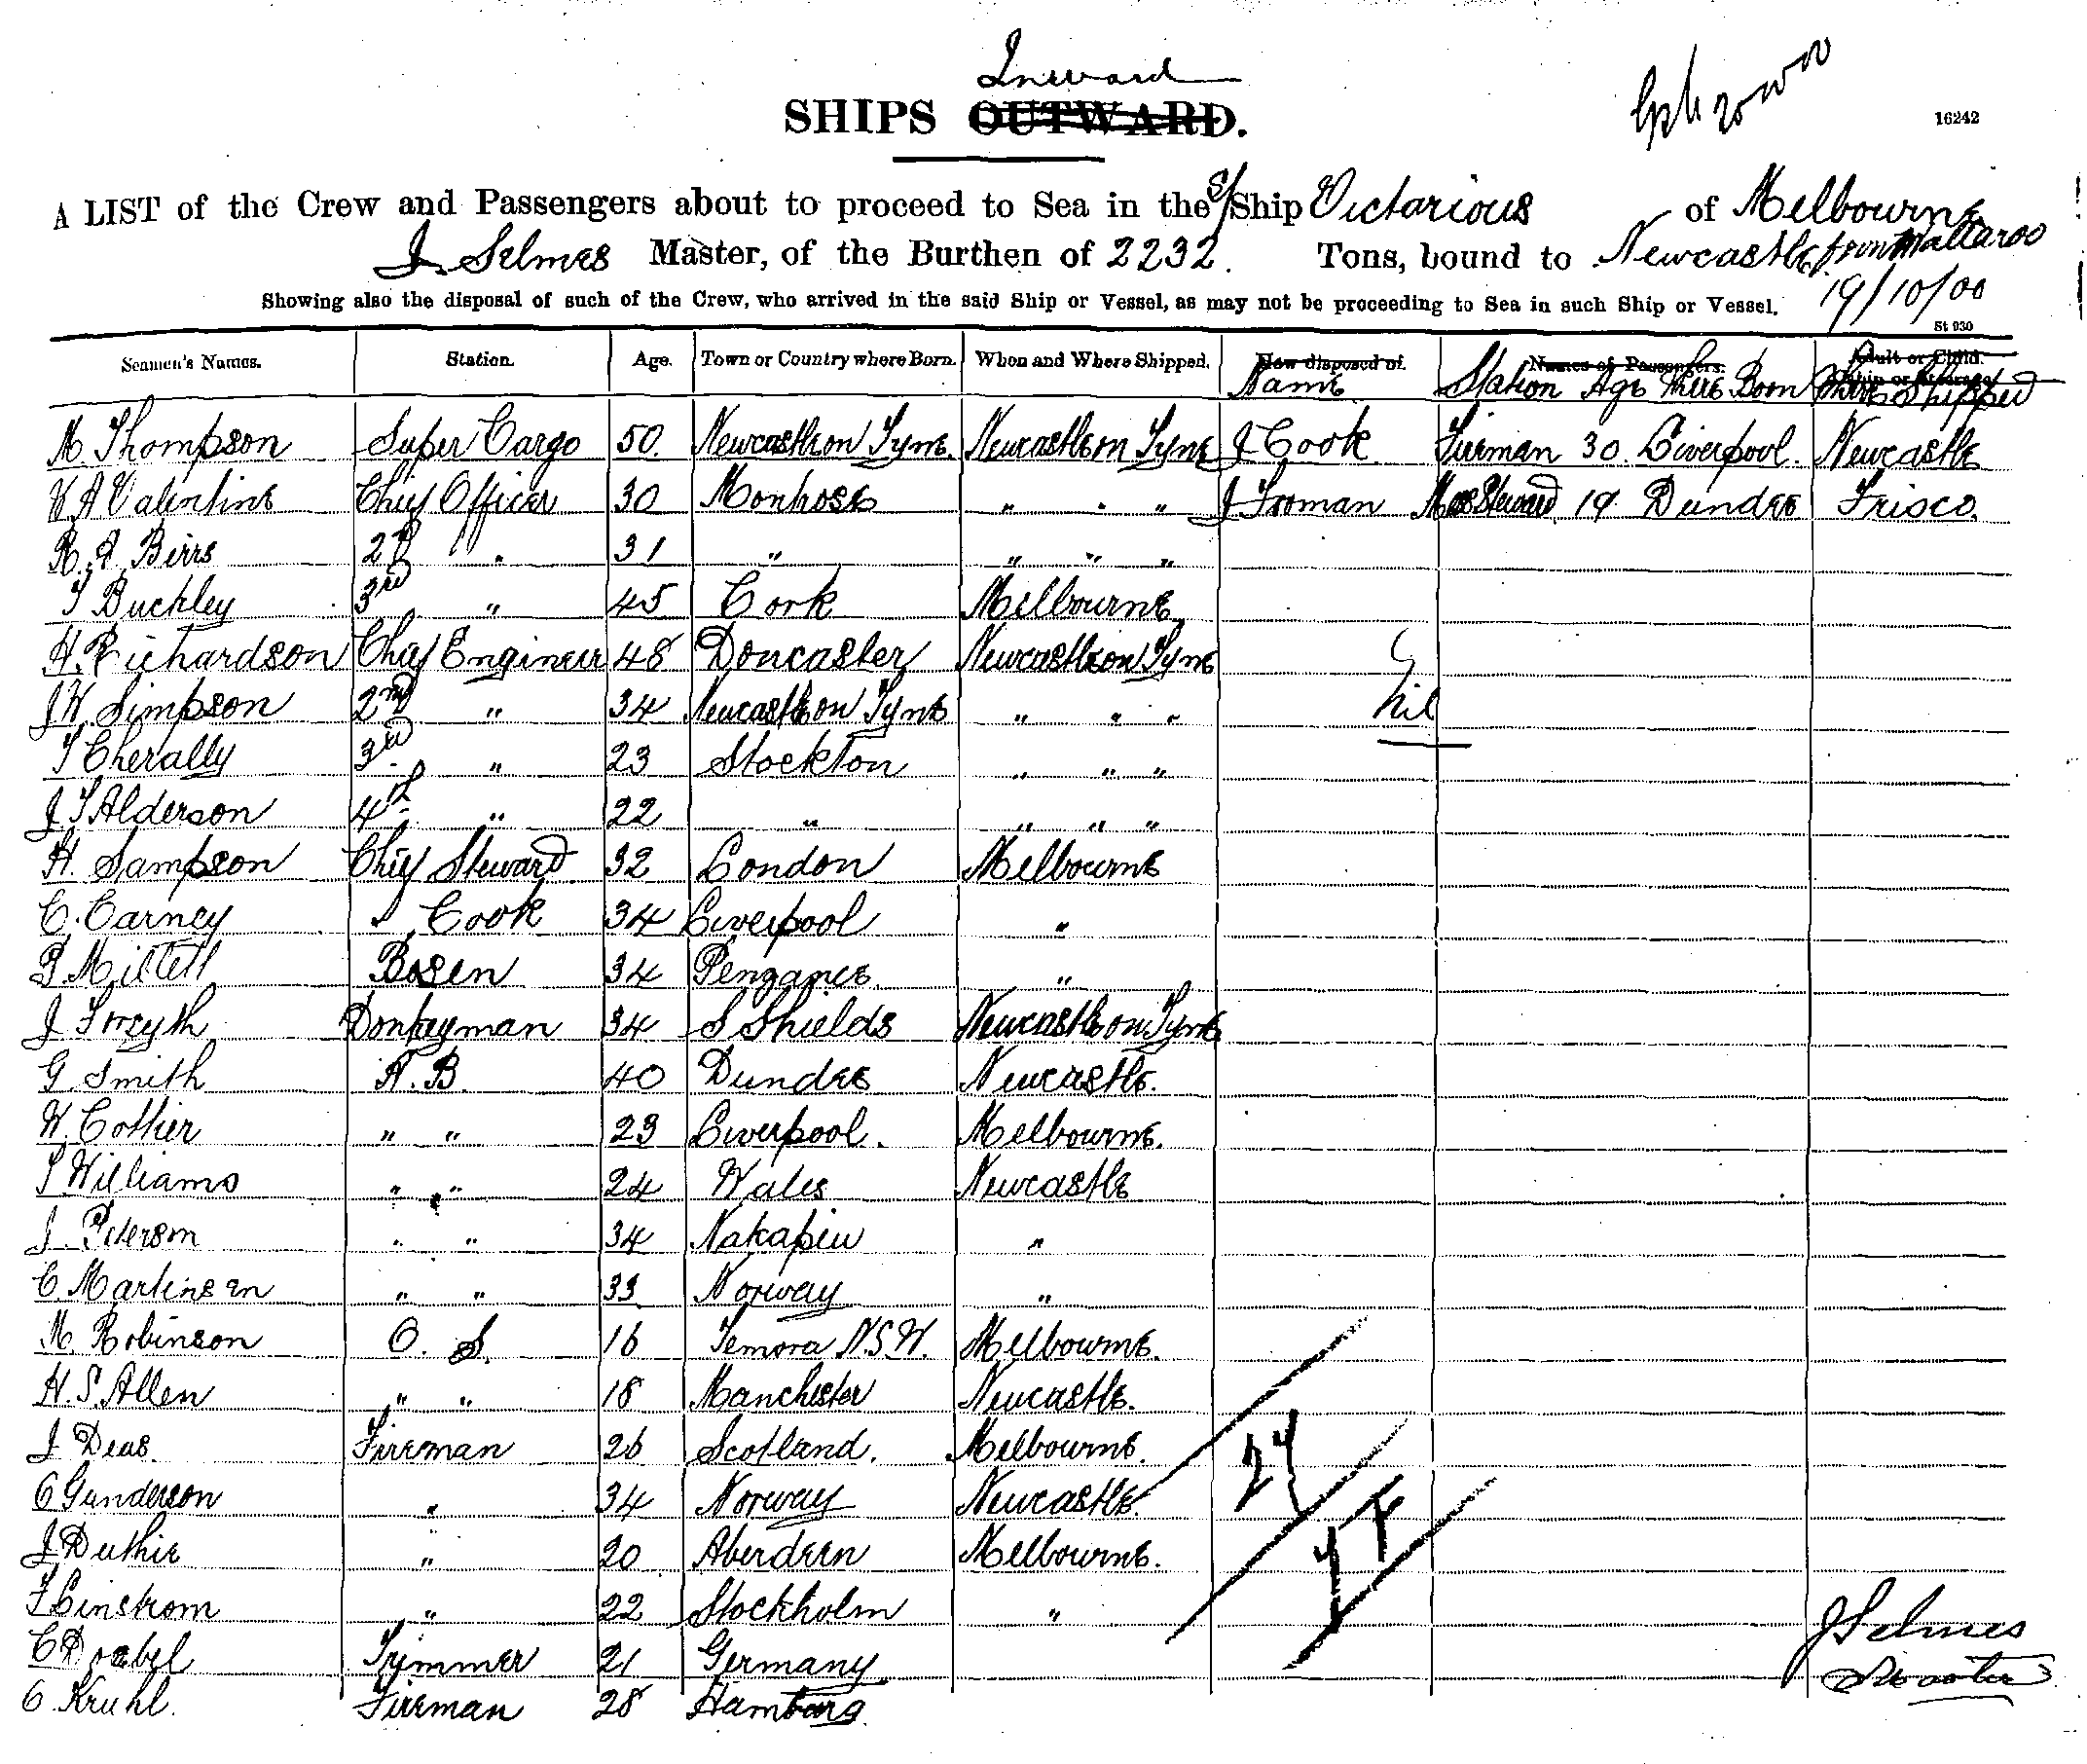 Inward
SHIPS OUTWARD.
16242
A LIST of the Crew and Passengers about to proceed to Sea in the S/Ship Victorious of Melbourne
J. Selmes Master, of the Burthen of 2232. Tons, bound to Newcastle from Wallaroo
Showing also the disposal of such of the Crew, who arrived in the said Ship or Vessel, as may not be proceeding to Sea in such Ship or Vessel. 19/10/00
St 930
Seamen's Names. Station. Age. Town or Country where Born. When and Where Shipped. How disposed of. Names of Passengers. Adult or Child.
Name Station Age Where Born Where Shipped
M. Thompson Super Cargo 50. Newcastle on Tyne. Newcastle on Tyne J Cook Fireman 30. Liverpool. Newcastle
W A Valentine Chief Officer 30 Montrose " " " J Troman Mess Steward 19. Dundee Frisco.
R. A. Birrs 2nd " 31 " " " "
T Buckley 3rd " 45 Cork Melbourne
H. Richardson Chief Engineer 48 Doncaster Newcastle on Tyne
J W. Simpson 2nd " 34 Newcastle on Tyne " " " Nil
T Cherally 3rd " 23 Stockton " " "
J T Alderson 4th " 22 " " " "
H. Sampson Chief Steward 32 London Melbourne
C. Carney Cook 34 Liverpool "
P. Millett Bosen 34 Penzance. "
J Forsyth Donkeyman 34 S Shields Newcastle on Tyne
G Smith A. B. 40 Dundee Newcastle.
W. Cottier " " 23 Liverpool. Melbourne.
T Williams " " 24 Wales Newcastle
J. Peterson " " 34 Nakapiu "
C. Martinsen " " 33 Norway "
M. Robinson O. S. 16 Temora N.S.W. Melbourne.
H. S. Allen " " 18 Manchester Newcastle.
J Deas. Fireman 26 Scotland. Melbourne.
C Gunderson " 34 Norway Newcastle.
J Duthie " 20 Aberdeen Melbourne.
F Linstrom " 22 Stockholm "
J Selmes
C Doebel Trimmer 21 Germany
C. Kruhl. Fireman 28 Hamburg